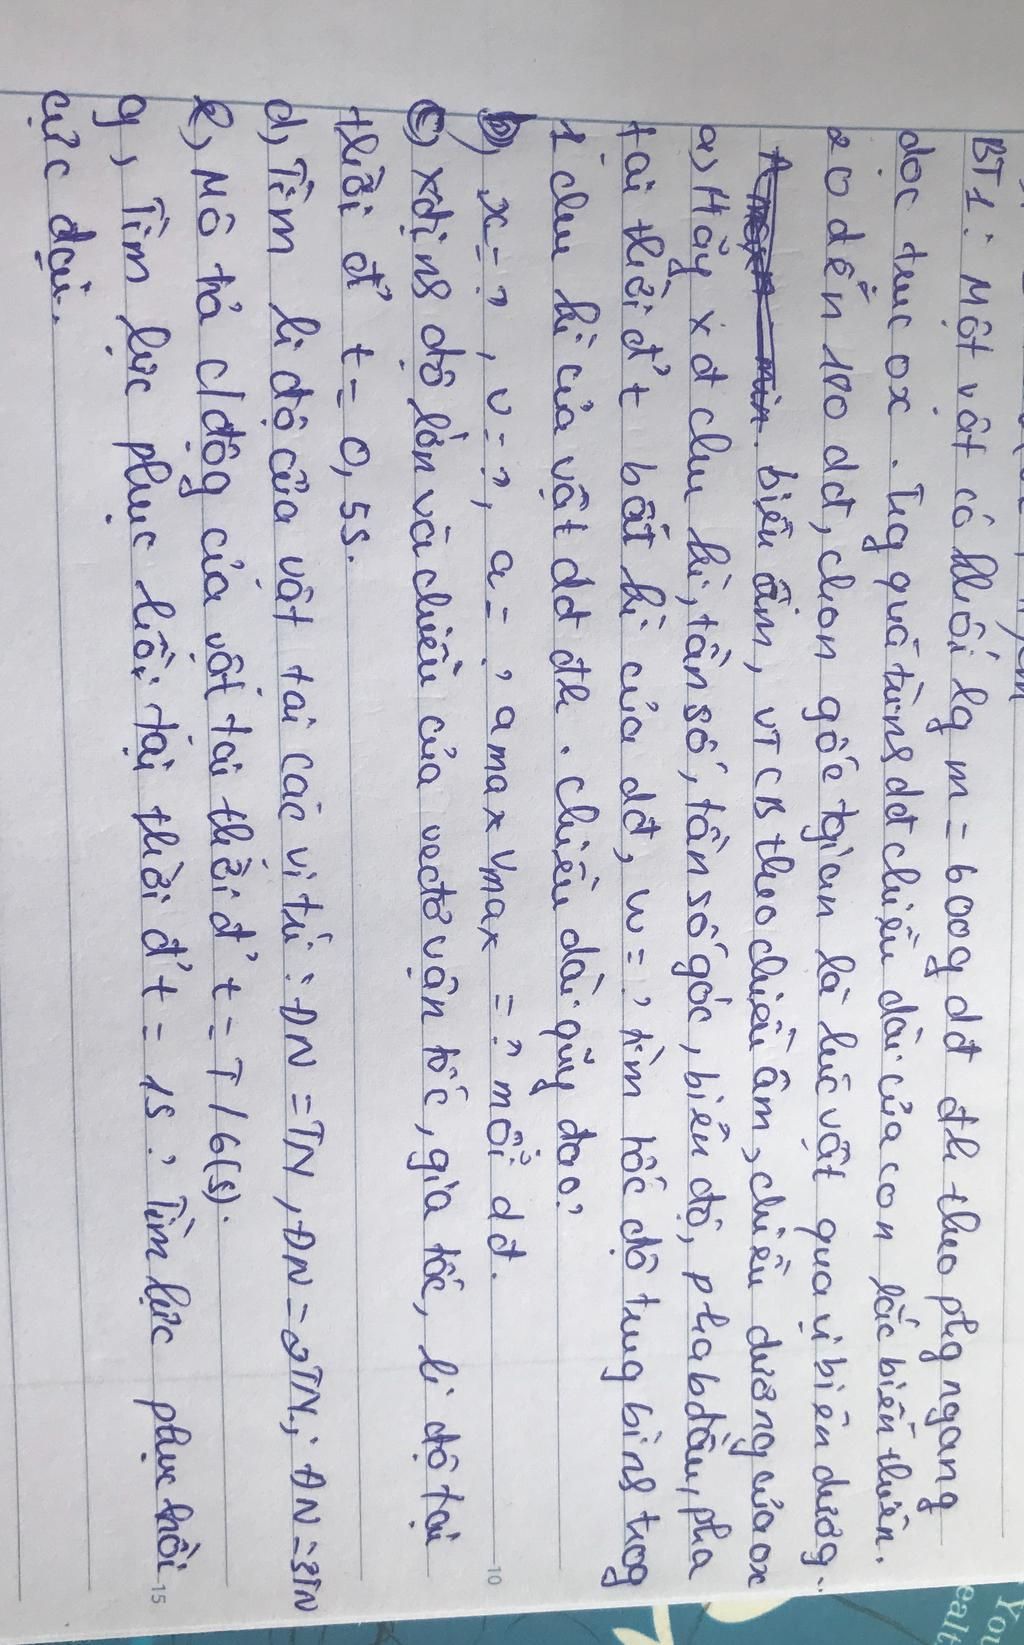 BT1: Một vật có khối lg m = 600g dđ đh theo phg ngang
dọc trục ox. Tŋg quá trình dđ chiều dài của con lắc biến thiên.
20 đến 180 dđ, chọn gốc tgian là lúc vật qua vị biên dương.
biên âm, VTCB theo chiều âm, chiều dương của ox
a, Hãy xđ chu kì, tần số, tần số góc, biên độ, pha bđầu, pha
tại thời đ' t bất kì của dđ, w = ? tìm tốc độ trung bình trog
1 chu kì của vật dđ đh. chiều dài qũy đạo?
b), x = ?, v = ?, a = ? amax vmax = ? mỗi dđ.
c) xđịnh độ lớn và chiều của vectơ vận tốc, gia tốc, li độ tại
thời đ' t = 0,5s.
d, Tìm li độ của vật tại các vị trí: ĐN = TN, ĐN = 2TN; ĐN = 3TN
e, Mô tả c/động của vật tại thời đ' t = T/6(s).
g, Tìm lực phục hồi tại thời đ' t = 1s? Tìm lực phục hồi
cực đại.
10
15
You
ealt